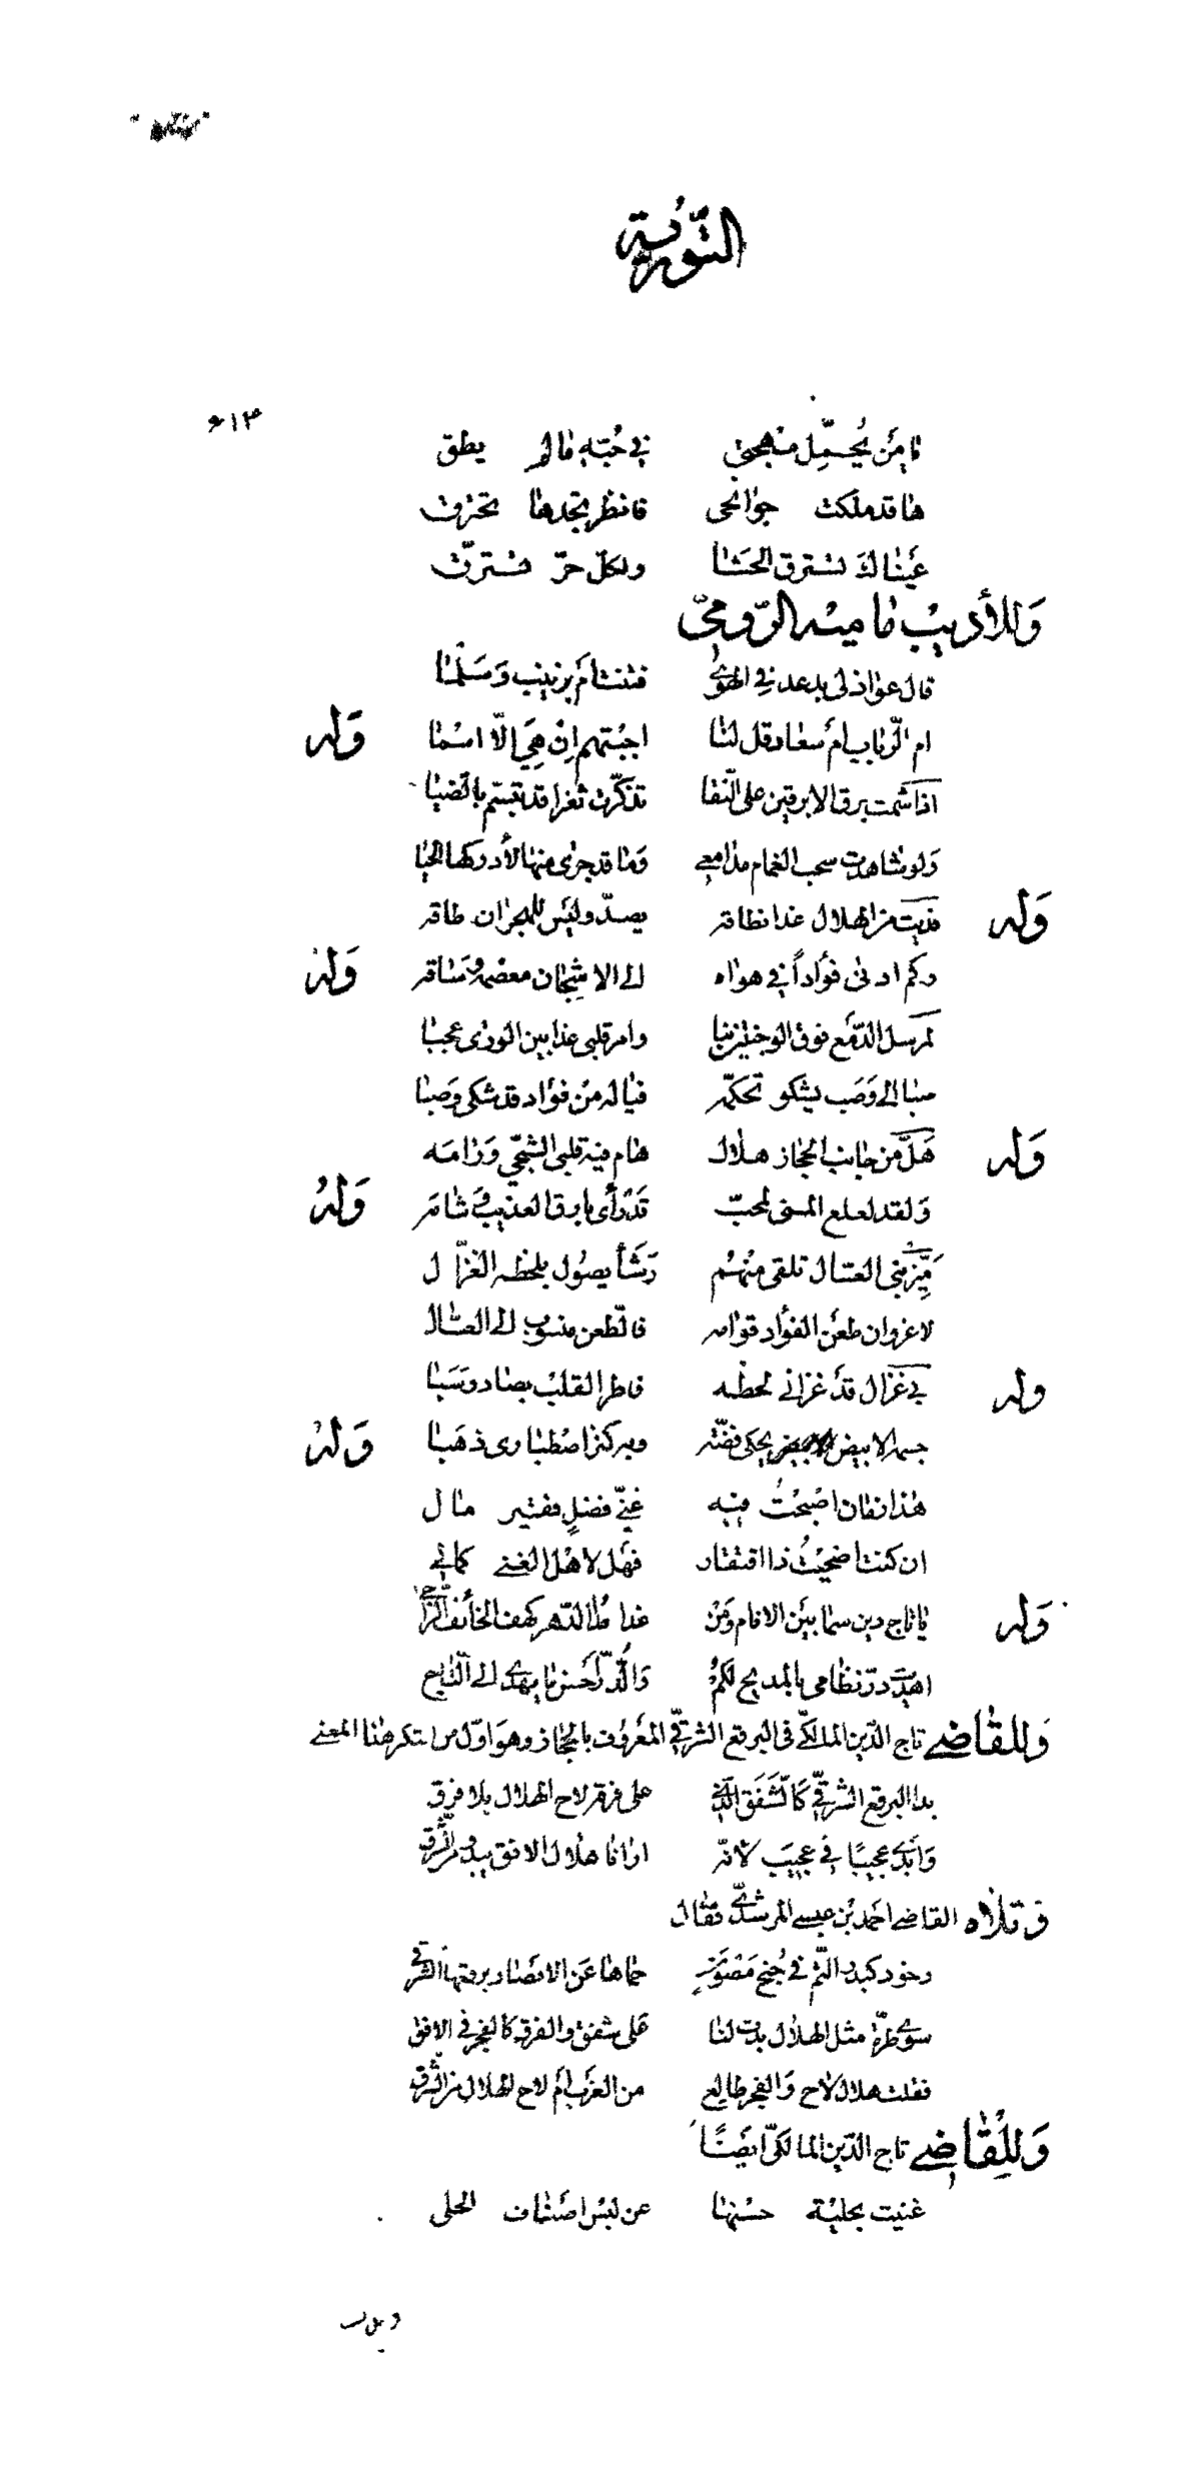 التورية
٦١٣
يا من يحمّل مهجتي في حبّه ما لم يطق
ها قد ملكت جوانحي فانظر تجدها تحترق
عيناك تسترق الحشا ولكلّ حرّ تسترق
وللأديب ماميه الرومي
قال عواذلي بدعد في الهوى فتنت أم بزينب وسلما
ام الرباب ام سعاد قل لنا اجبتهم إن هي إلّا اسما وله
اذا شمت برق الابرقين على النقا تذكّرت ثغرا قد تبسّم بالضيا
ولو شاهدت سحب الغمام مدامعي وما قد جرى منها لأدركها الحيا
وله فديت من الهلال غدا نطاقه يصدّ وليس للهجران طاقه
وكم ادنى فؤاداً في هواه الى الاشجان معصمه وساقه وله
لمرسل الدمع فوق الوجنتين نبا وامر قلبي غدا بين الورى عجبا
صبا الى وصب يشكو تحكّمه فيا له من فؤاد قد شكى وصبا
وله هلّ من جانب الحجاز هلال هام فيه قلبي الشجي ورامه
ولقد لعلع المنى لمحبّ قد رأى بارق العذيب وشامه وله
ميّز بني العسال تلقى منهم رشأ يصول بلحظه الغزّال
لا غرو ان طعن الفؤاد قوامه فالطعن منسوب الى العسّال
وله بي غزال قد غزاني لحظه فاطر القلب بصاد وسبا
جسمه الابيض يحكي فضّة وبه كنز اصطباري ذهبا وله
هذا زمان اصبحت فيه غنيّ فضلٍ فقير مال
ان كنت اضحيت ذا افتقار فهل لاهل الغنى كمالي
وله يا تاج دين سما بين الانام ومن غدا مدا الدهر كهف الخائف الراجي
اهديت درّ نظامي بالمديح لكم والدّر أحسن ما يهدى الى التاج
وللقاضي تاج الدّين المالكي في البرقع الشرقيّ المعروف بالحجاز وهو اوّل من ابتكر هذا المعنى
بدا البرقع الشرقيّ كالشفق الذي على فرقه لاح الهلال بلا فرق
وأبدى عجيبًا في عجيب لانه ارانا هلال الافق يبدو من الشرق
وتلاه القاضي احمد بن عيسى المرشدي فقال
وخود كبدر التمّ في جنح مصونة حماها عن الابصار برقعها الشرقي
سوى طرّة مثل الهلال بدت لنا على شفق والفرق كالفجر في الافق
فقلت هلال لاح والفجر طالع من الغرب أم لاح الهلال من الشرق
وللقاضي تاج الدّين المالكي أيضًا
غنيت بحلية حسنها عن لبس اصناف الحلى